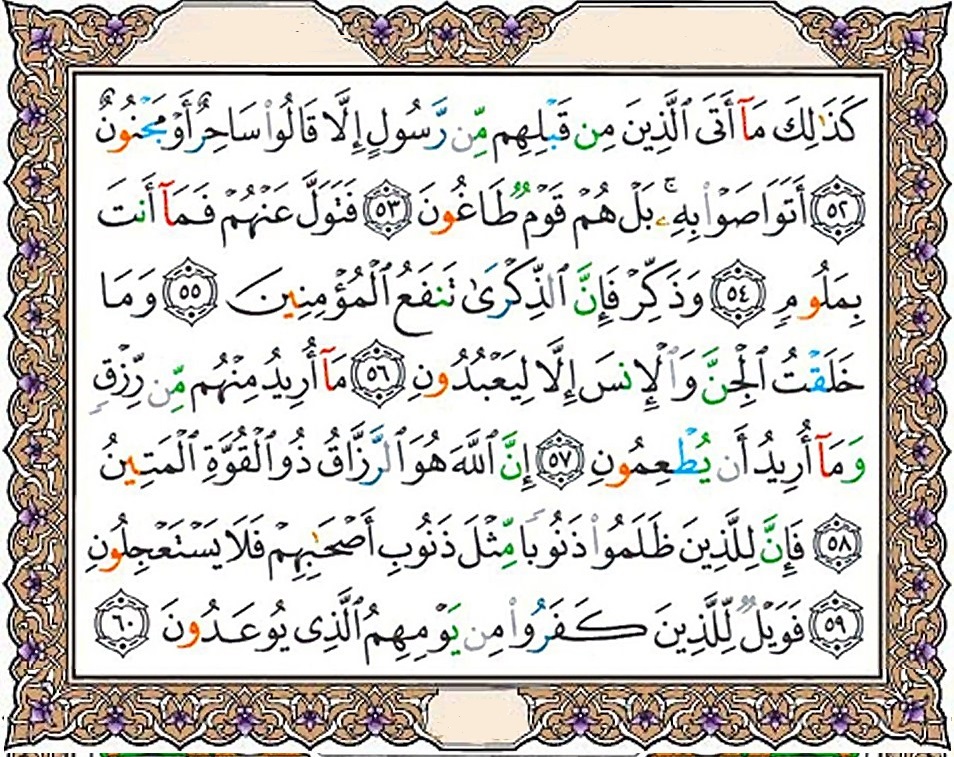 كَذَٰلِكَ مَآ أَتَى ٱلَّذِينَ مِن قَبْلِهِم مِّن رَّسُولٍ إِلَّا قَالُوا۟ سَاحِرٌ أَوْ مَجْنُونٌ
٥٢ أَتَوَاصَوْا۟ بِهِۦ ۚ بَلْ هُمْ قَوْمٌ طَاغُونَ ٥٣ فَتَوَلَّ عَنْهُمْ فَمَآ أَنتَ
بِمَلُومٍ ٥٤ وَذَكِّرْ فَإِنَّ ٱلذِّكْرَىٰ تَنفَعُ ٱلْمُؤْمِنِينَ ٥٥ وَمَا
خَلَقْتُ ٱلْجِنَّ وَٱلْإِنسَ إِلَّا لِيَعْبُدُونِ ٥٦ مَآ أُرِيدُ مِنْهُم مِّن رِّزْقٍ
وَمَآ أُرِيدُ أَن يُطْعِمُونِ ٥٧ إِنَّ ٱللَّهَ هُوَ ٱلرَّزَّاقُ ذُو ٱلْقُوَّةِ ٱلْمَتِينُ
٥٨ فَإِنَّ لِلَّذِينَ ظَلَمُوا۟ ذَنُوبًا مِّثْلَ ذَنُوبِ أَصْحَٰبِهِمْ فَلَا يَسْتَعْجِلُونِ
٥٩ فَوَيْلٌ لِّلَّذِينَ كَفَرُوا۟ مِن يَوْمِهِمُ ٱلَّذِى يُوعَدُونَ ٦٠